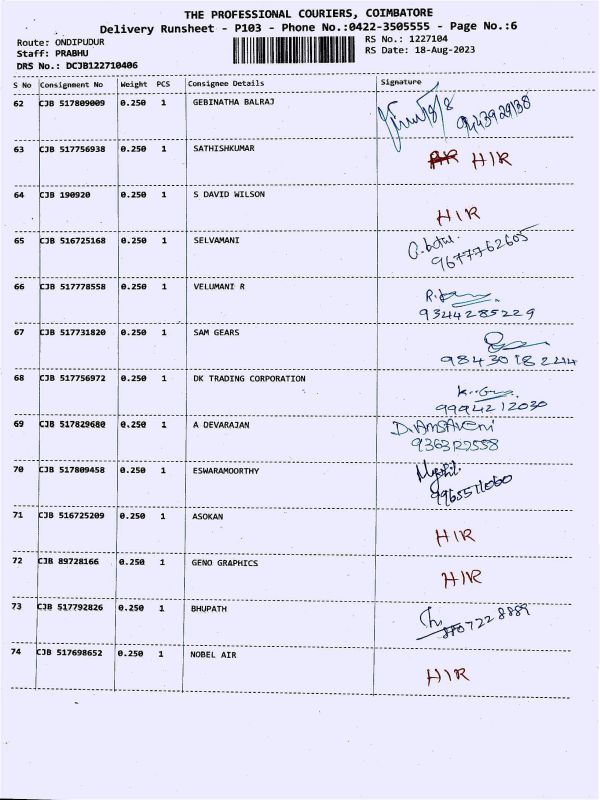 THE PROFESSIONAL COURIERS, COIMBATORE
Delivery Runsheet - P103 - Phone No.:0422-3505555 - Page No.:6
Route: ONDIPUDUR RS No.: 1227104
Staff: PRABHU RS Date: 18-Aug-2023
DRS No.: DCJB122710406
S No Consignment No Weight PCS Consignee Details Signature
62 CJB 517809009 0.250 1 GEBINATHA BALRAJ
63 CJB 517756938 0.250 1 SATHISHKUMAR HIR
64 CJB 190920 0.250 1 S DAVID WILSON
HIR
65 CJB 516725168 0.250 1 SELVAMANI
9677762605
66 CJB 517778558 0.250 1 VELUMANI R
9344285229
67 CJB 517731820 0.250 1 SAM GEARS
9843018244
68 CJB 517756972 0.250 1 DK TRADING CORPORATION
9994212030
69 CJB 517829680 0.250 1 A DEVARAJAN D.VAMSAVENI
70 CJB 517809458 0.250 1 ESWARAMOORTHY
71 CJB 516725209 0.250 1 ASOKAN
HIR
72 CJB 89728166 0.250 1 GENO GRAPHICS
HIR
73 CJB 517792826 0.250 1 BHUPATH
74 CJB 517698652 0.250 1 NOBEL AIR
HIR